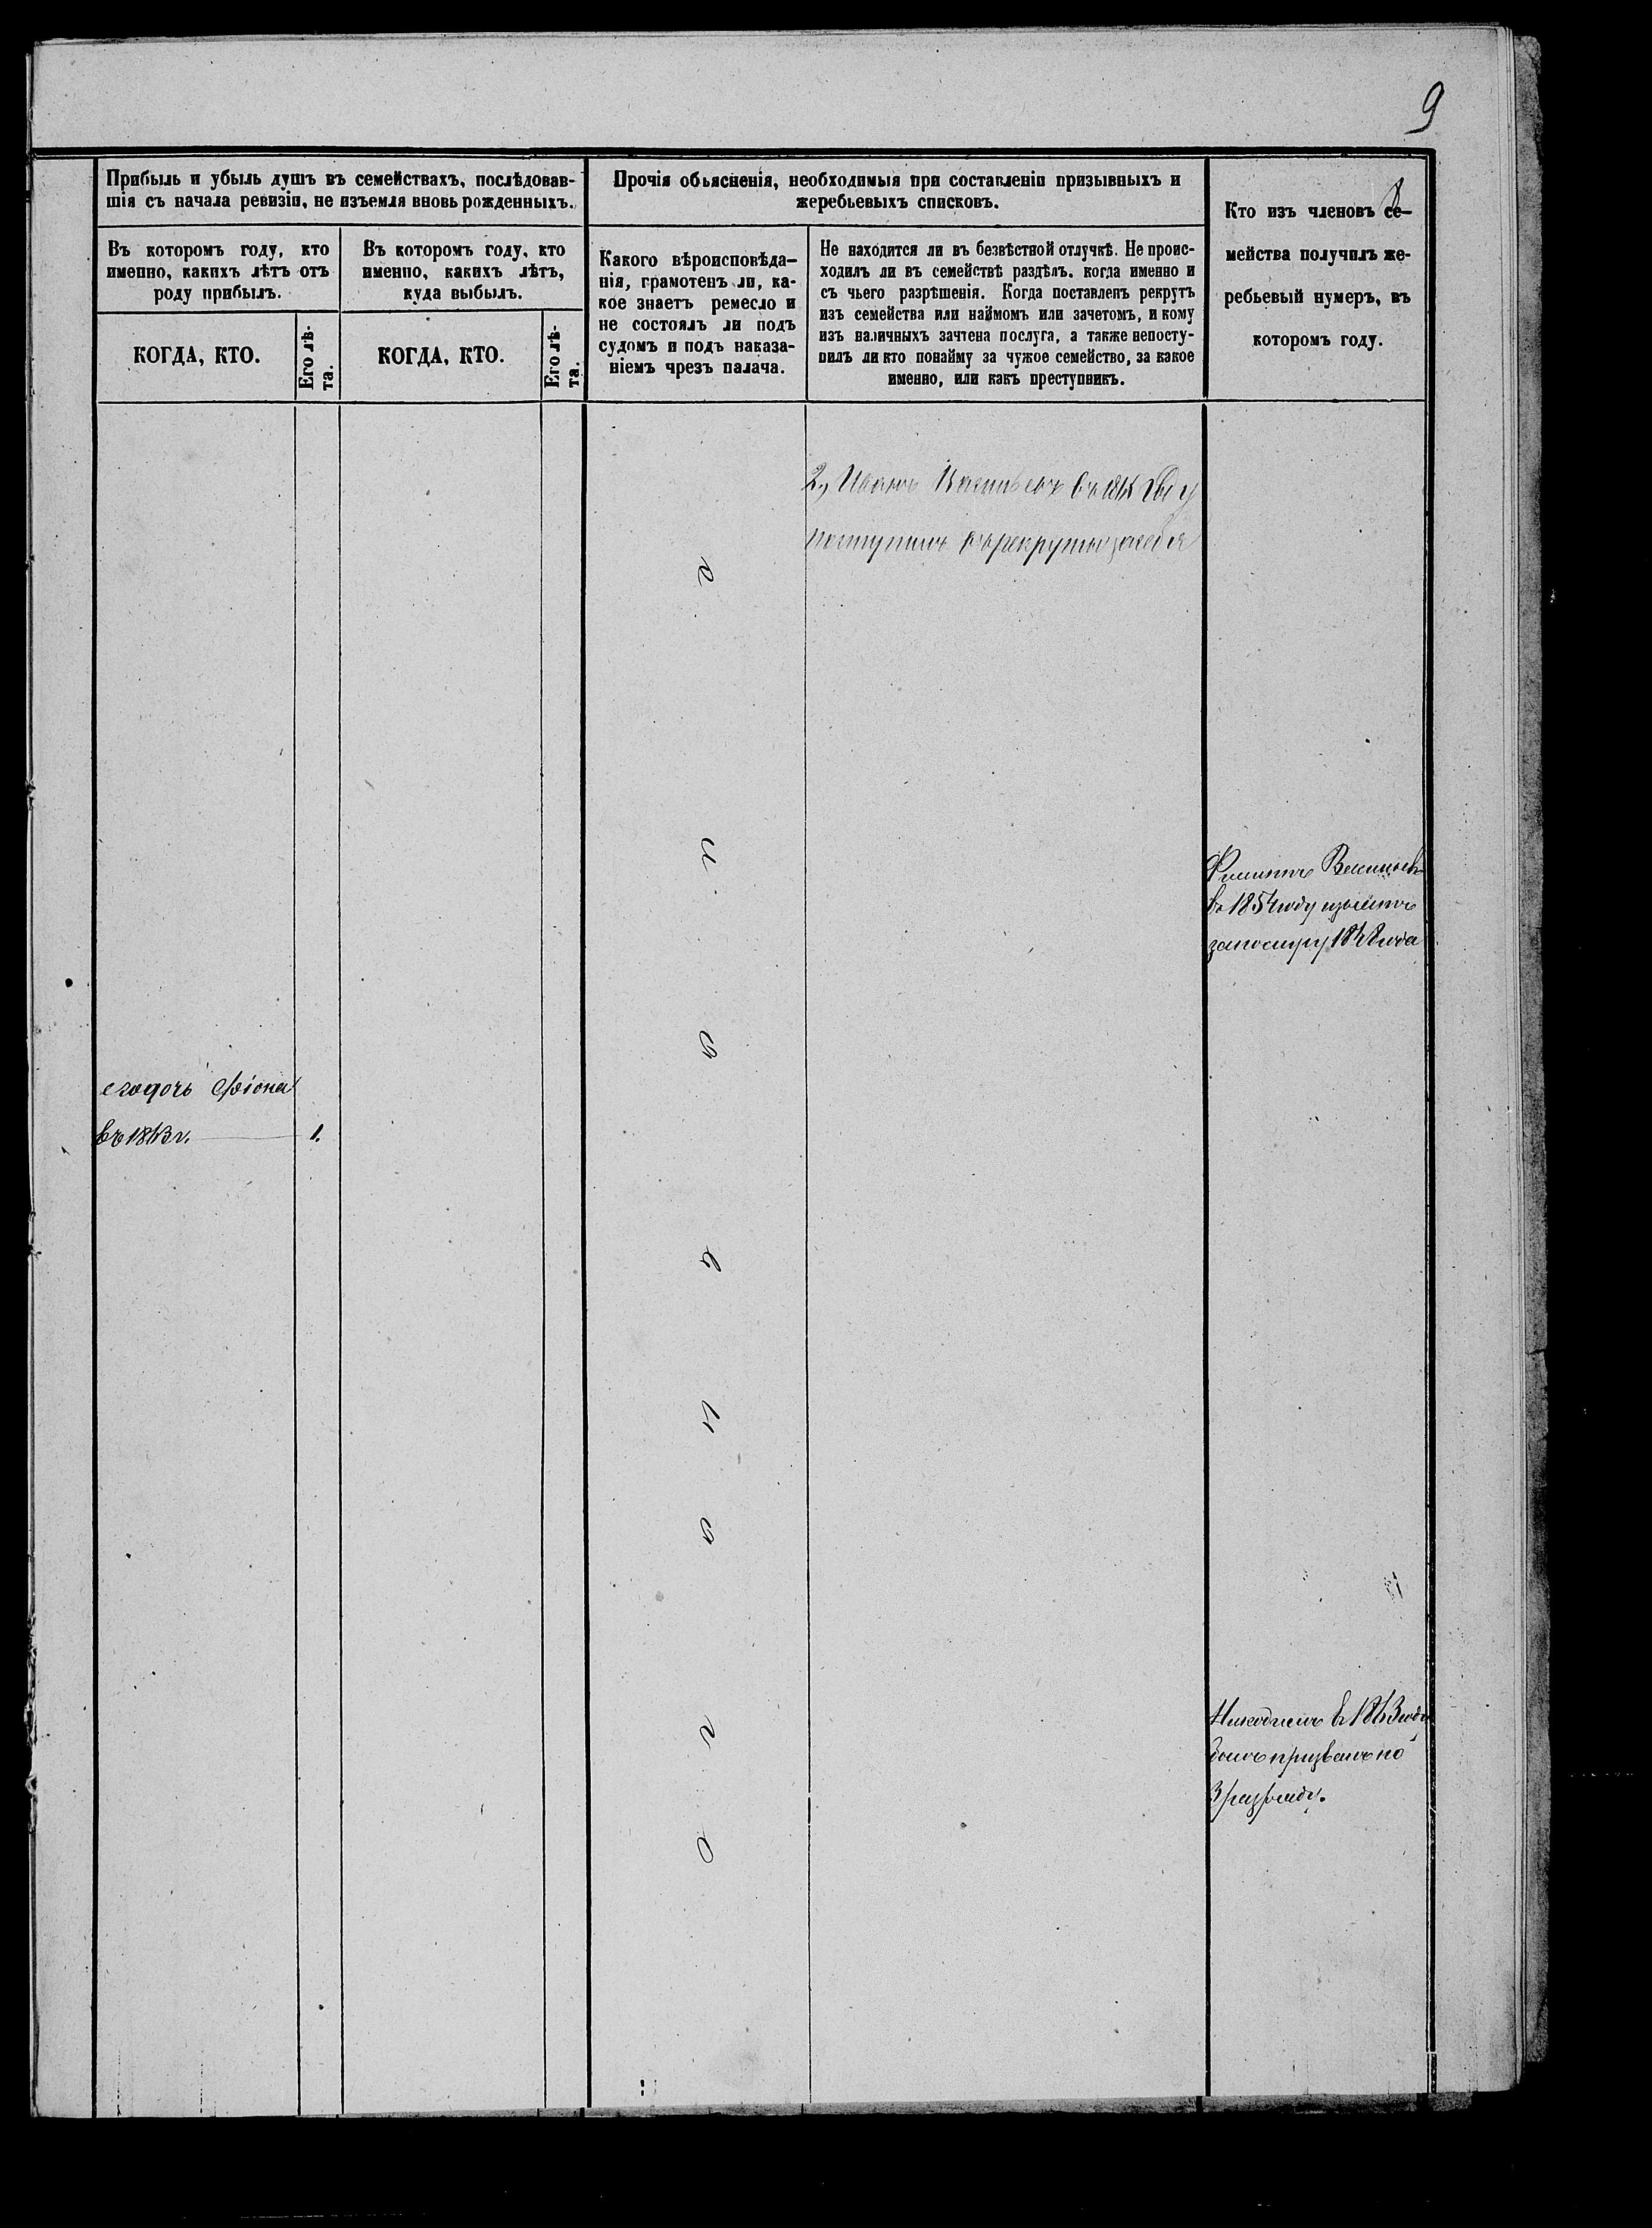 9
Прибыль и убыль душъ въ семействахъ, послѣдовав-
шія съ начала ревизіи, не изъемля вновь рожденныхъ.
Въ которомъ году, кто
именно, какихъ лѣтъ отъ
роду прибылъ.
Въ которомъ году, кто
именно, какихъ лѣтъ,
куда выбылъ.
КОГДА, КТО.
Его лѣ-
та.
КОГДА, КТО.
Его лѣ-
та.
Прочія объясненія, необходимыя при составленіи призывныхъ и
жеребьевыхъ списковъ.
Какого вѣроисповѣда-
нія, грамотенъ ли, ка-
кое знаетъ ремесло и
не состоялъ ли подъ
судомъ и подъ наказа-
ніемъ чрезъ палача.
Не находится ли въ безвѣстной отлучкѣ. Не проис-
ходилъ ли въ семействѣ раздѣлъ. когда именно и
съ чьего разрѣшенія. Когда поставленъ рекрутъ
изъ семейства или наймомъ или зачетомъ, и кому
изъ наличныхъ зачтена послуга, а также непосту-
пилъ ли кто понайму за чужое семейство, за какое
именно, или какъ преступникъ.
Кто изъ членовъ се-
мейства получилъ же-
ребьевый нумеръ, въ
которомъ году.
2, Иванъ Васильевъ въ году
поступилъ въ рекруты за себя
Филиппъ Васильевъ
въ 1854 году изъятъ
за послугу 1848 года
его дочь Фіона
въ 1843 г. 1.
Никодимъ въ 1863 году
былъ призванъ по
3 разряду.